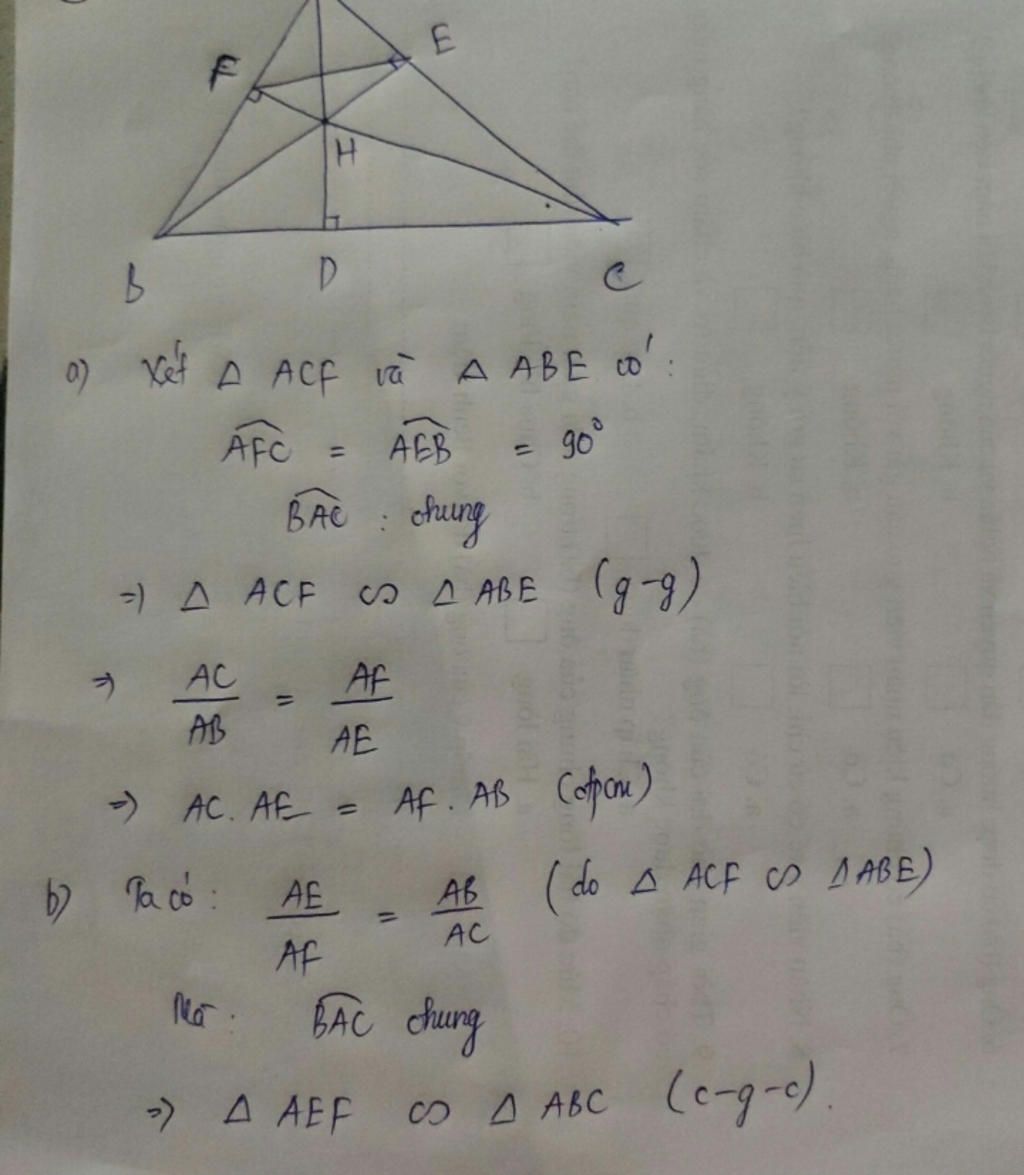 F
E
H
B D C
a) Xét Δ ACF và Δ ABE có:
AFC = AEB = 90°
BAC : chung
=) Δ ACF ∽ Δ ABE (g-g)
=) AC/AB = AF/AE
=) AC. AE = AF. AB (đpcm)
b) Ta có: AE/AF = AB/AC (do Δ ACF ∽ ΔABE)
Mà: BAC chung
=) Δ AEF ∽ Δ ABC (c-g-c).